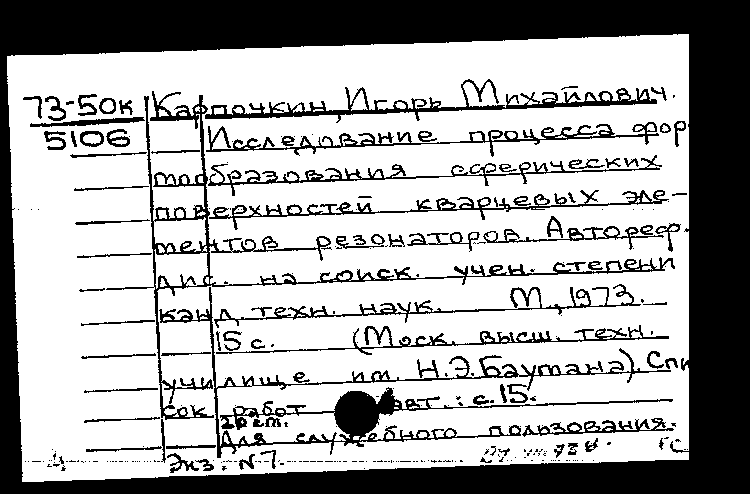 73-50к Карпочкин, Игорь Михайлович.
5106 Исследование процесса фор
мообразования сферических
поверхностей кварцевых эле-
ментов резонаторов. Автореф.
дис. на соиск. учен. степени
канд. техн. наук. М., 1973.
15 с. (Моск. высш. техн.
училище им. Н.Э.Баумана). Спи
сок работ авт.: с. 15.
Для служебного пользования.
Экз. № 7.